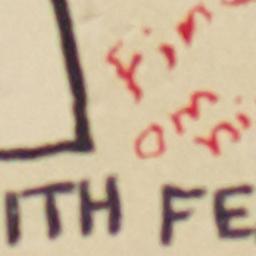 fin
om
ni
ITH FE